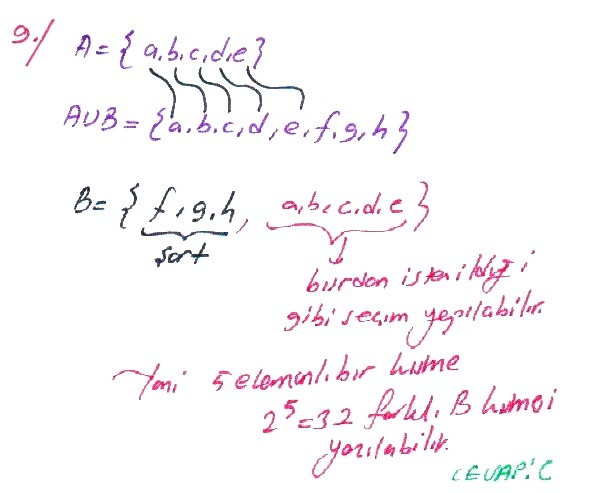 9./ A = { a,b,c,d,e }
A∪B = { a,b,c,d,e,f,g,h }
B = { f,g,h, a,b,c,d,e }
şart
burdan istenildiği
gibi seçim yapılabilir.
Yani 5 elemanlı bir küme
2⁵=32 farklı B kümesi
yazılabilir.
CEVAP: C